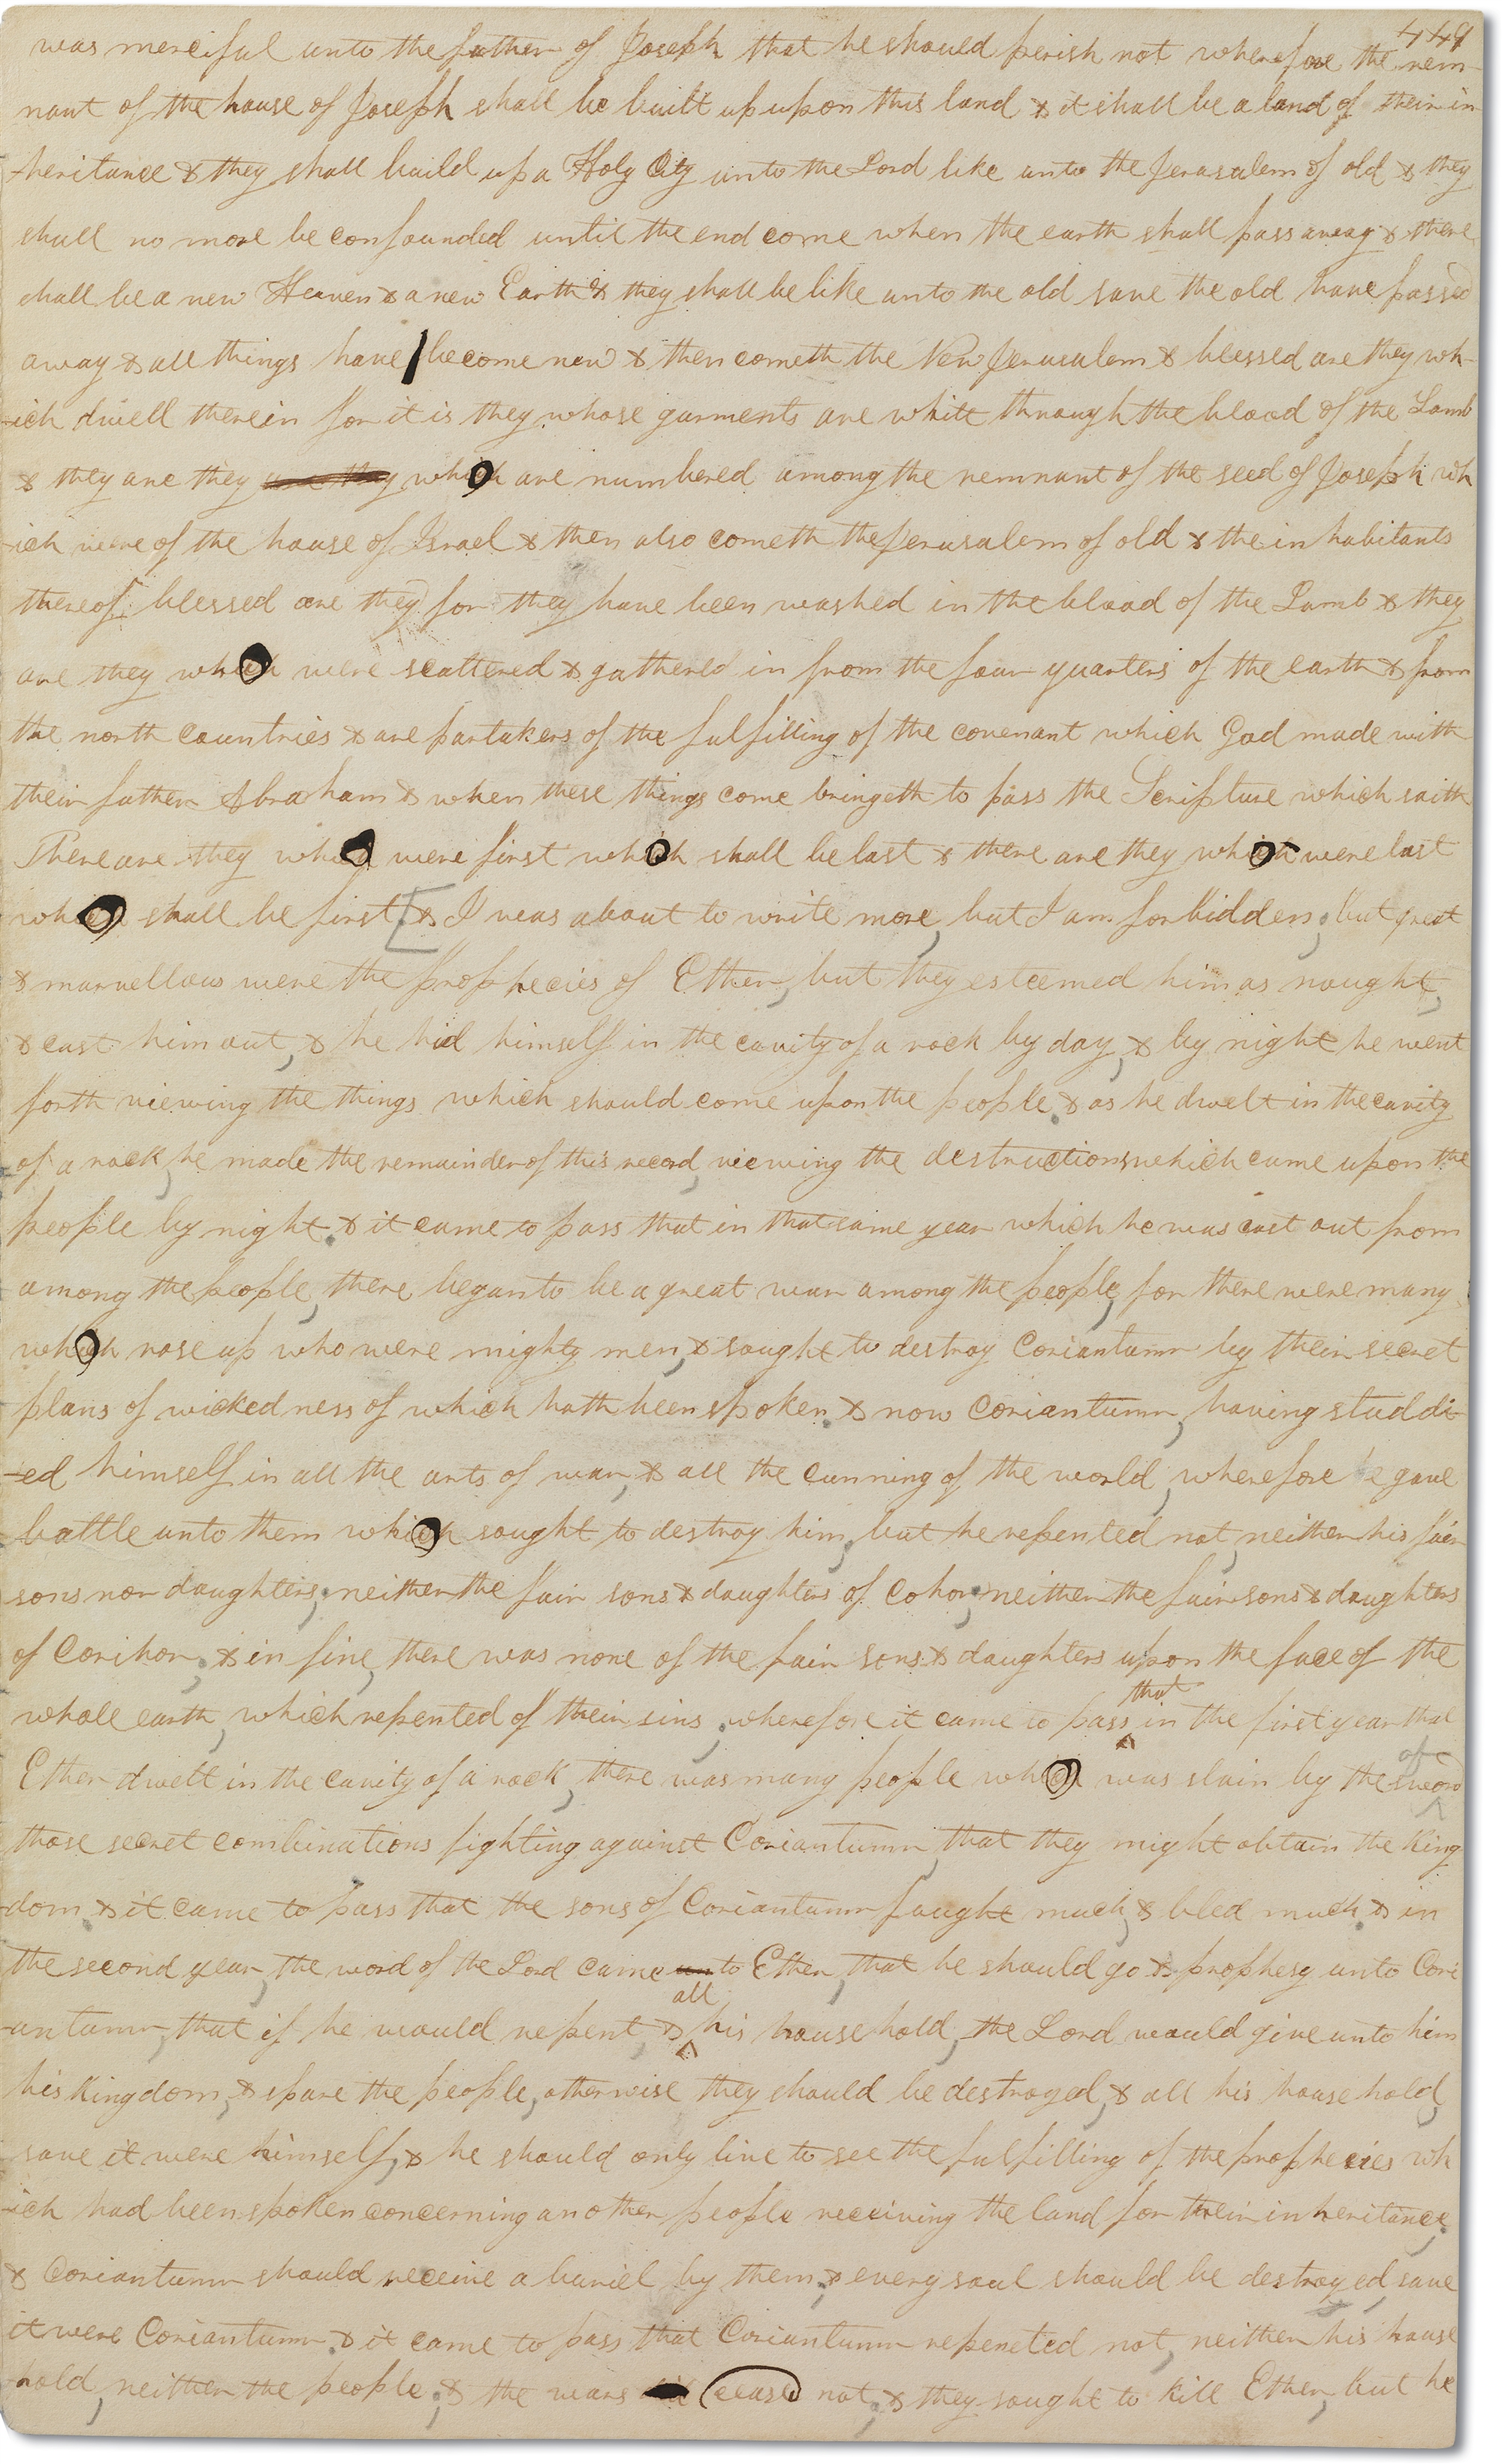 449
was merciful unto the father of Joseph that he should perish not wherefore the rem-
nant of the house of Joseph shall be built up upon this land & it shall be a land of their in
-heritance & they shall build up a Holy City unto the Lord like unto the Jerusalem of old & they
shall no more be confounded until the end come when the earth shall pass away & there
shall be a new Heaven & a new Earth & they shall be like unto the old save the old have passed
away & all things have become new & then cometh the New Jerusalem & blessed are they wh-
-ich dwell therein for it is they whose garments are white through the blood of the Lamb
& they are they are they which are numbered among the remnant of the seed of Joseph wh
-ich were of the house of Israel & then also cometh the Jerusalem of old & the inhabitants
thereof, blessed are they for they have been washed in the blood of the Lamb & they
are they which were scattered & gathered in from the four quarters of the earth & from
the north countries & are partakers of the fulfilling of the covenant which God made with
their father Abraham & when these things come bringeth to pass the Scripture which saith
There are they which were first which shall be last & there are they which were last
which shall be first [& I was about to write more, but I am forbidden; but great
& marvellous were the prophecies of Ether, but they esteemed him as nought,
& cast him out, & he hid himself in the cavity of a rock by day, & by night he went
forth viewing the things which should come upon the people. & as he dwelt in the cavity
of a rock, he made the remainder of this record, viewing the destructions which came upon the
people by night. & it came to pass that in that same year which he was cast out from
among the people, there began to be a great war among the people, for there were many
which rose up who were mighty men, & sought to destroy Coriantumr by their secret
plans of wickedness of which hath been spoken. & now Coriantumr, having studdi-
-ed himself in all the arts of war, & all the cunning of the world, wherefore he gave
battle unto them which sought to destroy him, but he repented not, neither his fair
sons nor daughters; neither the fair sons & daughters of Cohor; neither the fair sons & daughters
of Corihor; & in fine, there was none of the fair sons & daughters upon the face of the
whole earth, which repented of their sins; wherefore it came to pass that in the first year that
Ether dwelt in the cavity of a rock, there was many people which was slain by the sword of
those secret combinations fighting against Coriantumr, that they might obtain the King
dom. & it came to pass that the sons of Coriantumr fought much, & bled much. & in
the second year, the word of the Lord came unto Ether, that he should go & prophesy unto Cori
-antumr, that if he would repent, & all his household, the Lord would give unto him
his Kingdom, & spare the people, otherwise they should be destroyed, & all his household,
save it were himself, & he should only live to see the fulfilling of the prophecies wh
-ich had been spoken concerning another people receiving the land for their inheritance;
& Coriantumr should receive a buriel by them; & every soul should be destroyed, save
it were Coriantumr. & it came to pass that Coriantumr repented not, neither his house
hold, neither the people; & the wars ceased not; & they sought to kill Ether, but he